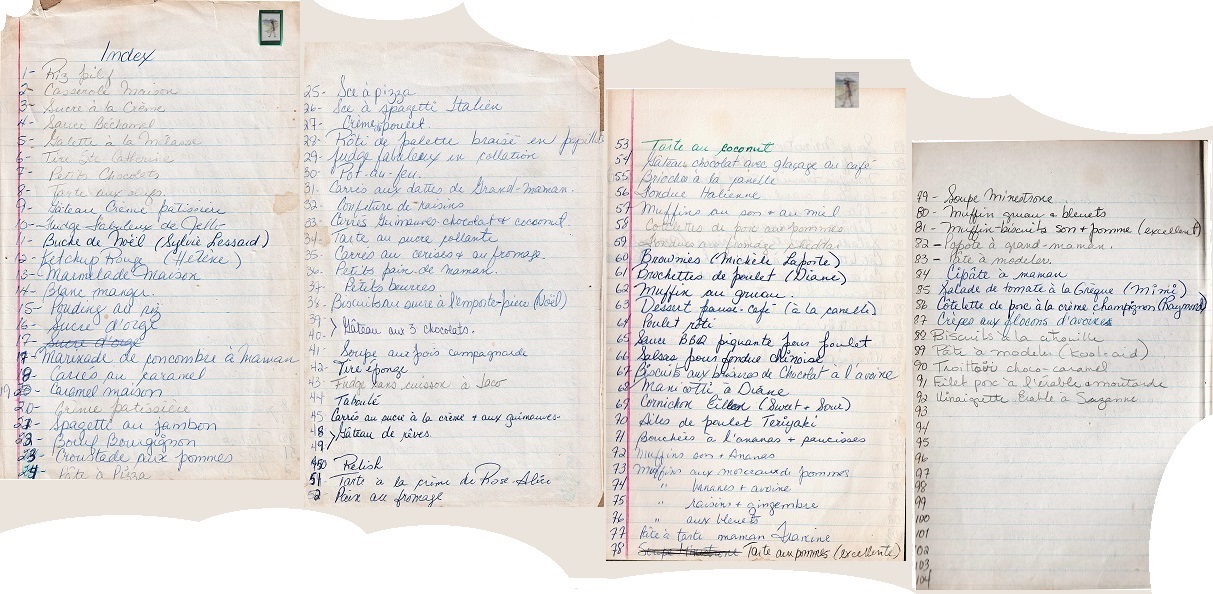 Index
1- Riz pilaf
2- Casserole Maison
3- Sucre à la Crème
4- Sauce Béchamel
5- Galette à la Mélasse
6- Tire Ste-Catherine
7- Petits Chocolats
8- Tarte aux
9- Gâteau Crème pâtissière
10- Fudge fabuleux de Jello
11- Buche de Noël (Sylvie Lessard)
12- Ketchup Rouge (Hélène)
13- Marmelade Maison
14- Blanc manger
15- Pouding au riz
16- Sucre d'orge
17- Sucre d'orge
17- Marinade de concombre à Maman
18- Carrés au caramel
19 Caramel maison
20- Crème patissière
21- Spagetti au jambon
22- Boeuf Bourgignon
23- Croustade aux pommes
24- Pâte à Pizza
25- Sce à pizza
26- Sce à spagetti Italien
27- Crème poulet.
28- Rôti de palette braisé en
29- Fudge fabuleux en collation
30- Pot-du-feu.
31. Carrés aux dattes de Grand-maman.
32- Confiture de raisins
33- Carrés Guimauves-chocolat & coconut.
34- Tarte au sucre collante
35- Carrés au cerises & au fromage.
36- Petits pains de maman.
37- Petits beurres
38- Biscuits au sucre à l'emporte-pièce (Noël)
39
40- Gâteau aux 3 chocolats.
41- Soupe aux pois campagnarde
42- Tire éponge
43- Fudge sans cuisson à Jaco
44 Taboulé
45 Carrés au sucre à la crème & aux guimauves-
48 Gâteau de rêves.
49
50 Relish
51- Tarte à la crème de Rose-Alie
52 Pain au fromage
53 Tarte au coconut
54 Gâteau chocolat avec glaçage au café
55 Brioches à la canelle
56 Fondue Italienne
57 Muffins au son & au miel
58 Côtelettes de porc aux pommes
59 Fondues au fromage cheddar
60 Brownies (Michèle Laporte)
61 Brochettes de poulet (Diane)
62 Muffin au gruau.
63 Dessert pause-café (à la canelle)
64 Poulet rôti
65 Sauce BBQ piquante pour poulet
66 Salsas pour fondue chinoise
67 Biscuits aux brisures de Chocolat à l'avoine
68 Manicotti à Diane
69 Cornichon (Sweet & Sour)
70 Ailes de poulet Teriyaki
71 Bouchées à l'ananas & saucisses
72 Muffins son & Ananas
73 Muffins aux morceaux de pommes
74 " bananes & avoine
75 " raisins & gingembre
76 " aux bleuets
77 Pâte à tarte maman Francine
78 Soupe Minestrone Tarte aux pommes (excellente)
79 - Soupe Minestrone
80 - Muffin gruau & bleuets
81 - Muffin-biscuits son & pomme (excellent)
82 - à grand-maman.
83 - Pâte à modeler.
84 Cipâte à maman
85 Salade de tomate à la Grèque (Mimi)
86 Côtelette de porc à la crème champignon (Raymond)
87 Crêpes aux flocons d'avoines
88 Biscuits à la citrouille
89 Pâte à modeler (Kool-aid)
90 choco-caramel
91 Filet porc à l'érable & moutarde
92 Vinaigrette Erable à Suzanne
93
94
95
96
97
98
99
100
101
102
103
104